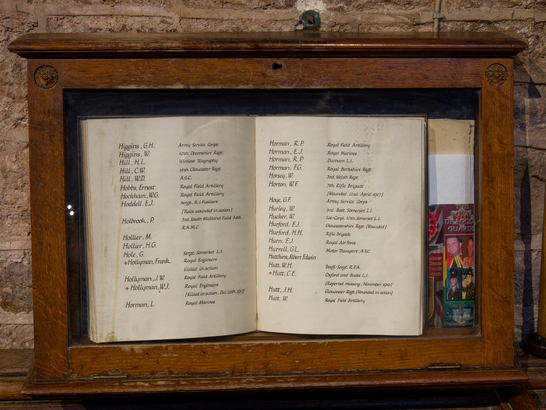 Higgins, G.H. Army Service Corps
Higgins, W. Devonshire Regt.
Hill, H.L.
Hill, C.W. Gloucester Regt.
Hill, W.D. A.S.C.
Hobbs, Ernest Royal Field Artillery
Hockham, W.G. Royal Field Artillery
Hoddell, E.J.
[Twice wounded in action]
Holbrook, P. 3rd South Midland Field Amb.
R.A.M.C.
Hollier, M.
Hollier, H.G.
Hole, G. Sergt. Somerset L.I.
+ Hollyman, Frank. Royal Engineers
Killed in action
Hollyman, J.W. Royal Field Artillery
+ Hollyman, W.J. Royal Engineers
[Killed in action, Dec.
Horman, L. Royal Marines
Horman, R.P. Royal Field Artillery
Horman, E.J. Royal Marines
Horman, R.P. Durham L.I.
Horman, F.G. Royal Berkshire Regt.
Horsey, W. 3rd. Welsh Regt.
Horton, W.F. 7th. Rifle Brigade
[Wounded 22nd. April 1917]
Hoye, G.F. Army Service Corps
Hurley, W. Somerset L.I.
Hucker, W. Somerset L.I.
Hurford, F.J. Gloucestershire Regt. [Wounded]
Hurford, H.H. Rifle Brigade
Hurn, E.J. Royal Air Force
Hurrell, G.L. Motor Transport, A.S.C.
Hutchins, Albert Edwin
Hutt, W.H. Staff Sergt. R.A.
+ Hutt, C.E. Oxford and Bucks L.I.
[Reported missing, November
Hutt, J.H. Gloucester Regt. [Wounded in action]
Hutt, W. Royal Field Artillery